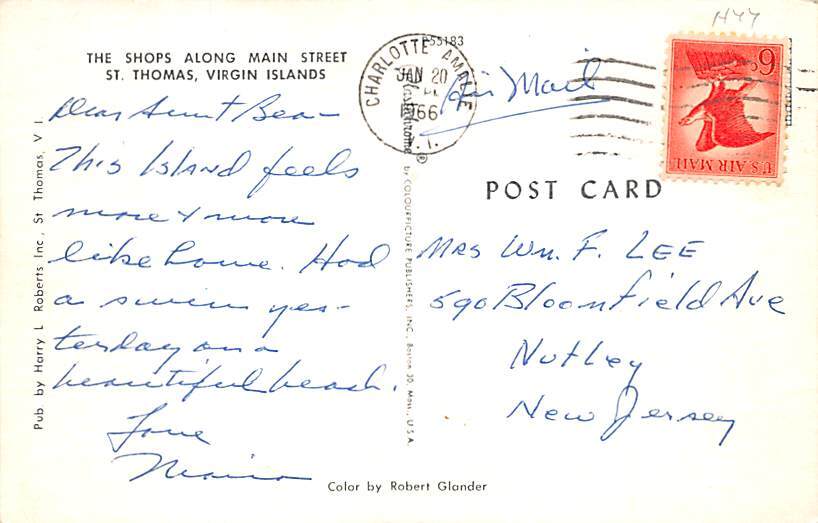 H44
THE SHOPS ALONG MAIN STREET
ST. THOMAS, VIRGIN ISLANDS
Dear Aunt Bea—
This Island feels
more & more
like home. Had
a swim yes-
terday on a
beautiful beach.
Love
Pub by Harry L Roberts Inc, St Thomas, V I
P55183
CHARLOTTE AMALIE
JAN 20
1966
V.I.
Air Mail
by COLOURPICTURE PUBLISHERS, INC., Boston 30, Mass., U.S.A.
6¢
U.S. AIR MAIL
POST CARD
Mrs Wm. F. LEE
590 Bloomfield Ave
Nutley
New Jersey
Color by Robert Glander